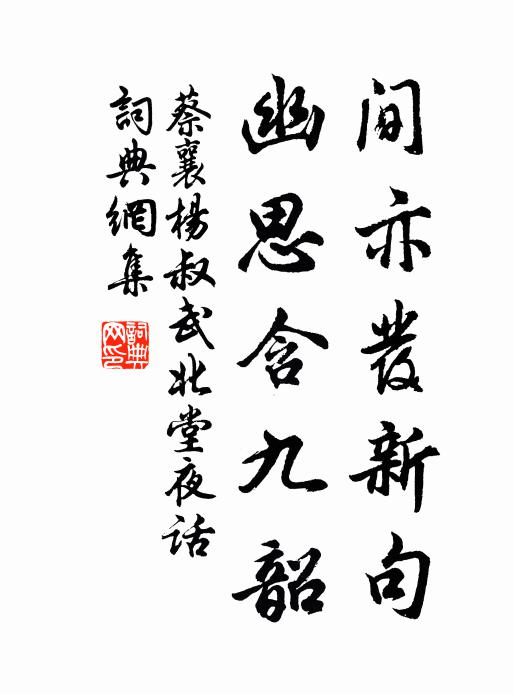 间亦發新句
幽思含九韶
蔡襄楊叔武北堂夜话
詞典網集
詞典
网印